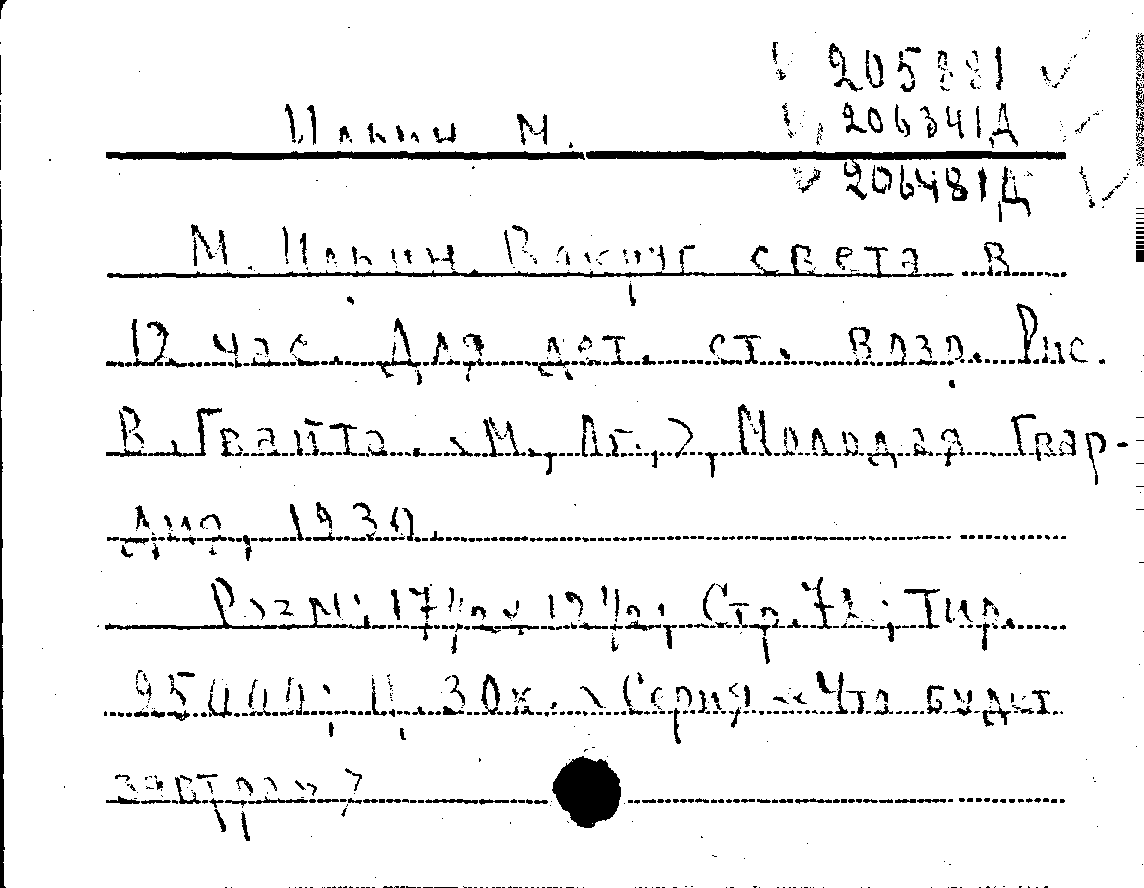 205881
Ильин М. 206341Д
206481Д
М. Ильин. Вокруг света в
12 час. Для дет. ст. возр. Рис.
В. Гвайта. <М., Лг.,>, Молодая Гвар-
дия, 1930.
Разм: 17 1/2 x 12 1/2; Стр. 72; Тир.
25000; Ц. 30к. <Серия «Что будет
завтра» >